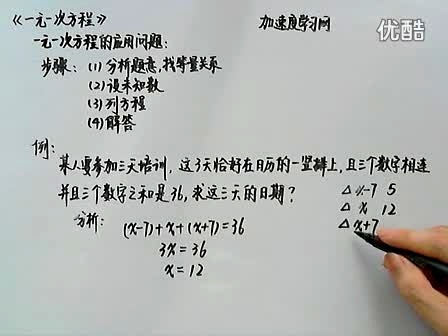 《一元一次方程》
加速度学习网
优酷
一元一次方程的应用问题:
步骤: (1) 分析题意,找等量关系
(2) 设未知数
(3) 列方程
(4) 解答
例:
某人要参加三天培训, 这3天恰好在日历的一竖排上, 且三个数字相连
并且三个数字之和是36, 求这三天的日期?
△ x-7 5
△ x 12
△ x+7
分析:
(x-7)+x+(x+7)=36
3x=36
x=12